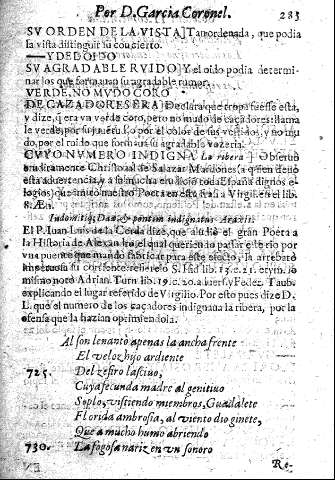 Por D. Garcia Coronel. 285
SV ORDEN DE LA VISTA] Tan ordenada, que podia
la vista distinguir su concierto.
— Y DEL OIDO
SV AGRADABLE RVIDO] Y el oido podia determi-
nar los que formauan su agradable rumor.
VERDE, NO MVDO CORO
DE CAZADORES ERA] Declara que tropa fuesse esta,
y dize, q̃ era vn verde coro, pero no mudo de caçadores: llama
le verde, por su juuentud, o por el color de sus vestidos, y no mu-
do, por el ruido que formaua su agradable vozeria.
CVYO NVMERO INDIGNA La ribera] Obseruò
eruditamente Christoual de Salazar Mardones (a quien deuo
esta aduertencia, y a su mucha erudicion toda España dignos e-
logios) que imitò nuestro Poeta en esta frasi a Virgil. en el lib.
8. Æn.
Indomitiq; Dae, & pontem indignatus Araxis.
El P. Iuan Luis de la Cerda dize, que aludiò el gran Poeta a
la Historia de Alexandro, el qual queriendo passar este rio por
vna puente que mandò fabricar para este efecto, la arrebatò
su corriente: refierelo S. Isid. lib. 13. c. 21. etym. lo
mismo notò Adrian. Turn. lib. 19. c. 20. aduers. y Federic. Taub.
explicando el lugar referido de Virgilio. Por esto pues dize D.
L. que el numero de los caçadores indignaua la ribera, por la
ofensa que la hazian oprimiendola.
Al son leuantò apenas la ancha frente
El veloz hijo ardiente
725. Del zefiro lasciuo,
Cuya fecunda madre al genitiuo
Soplo, vistiendo miembros, Guadalete
Florida ambrosia, al viento diò ginete,
Que a mucho humo abriendo
730. La fogosa nariz en vn sonoro
Re-